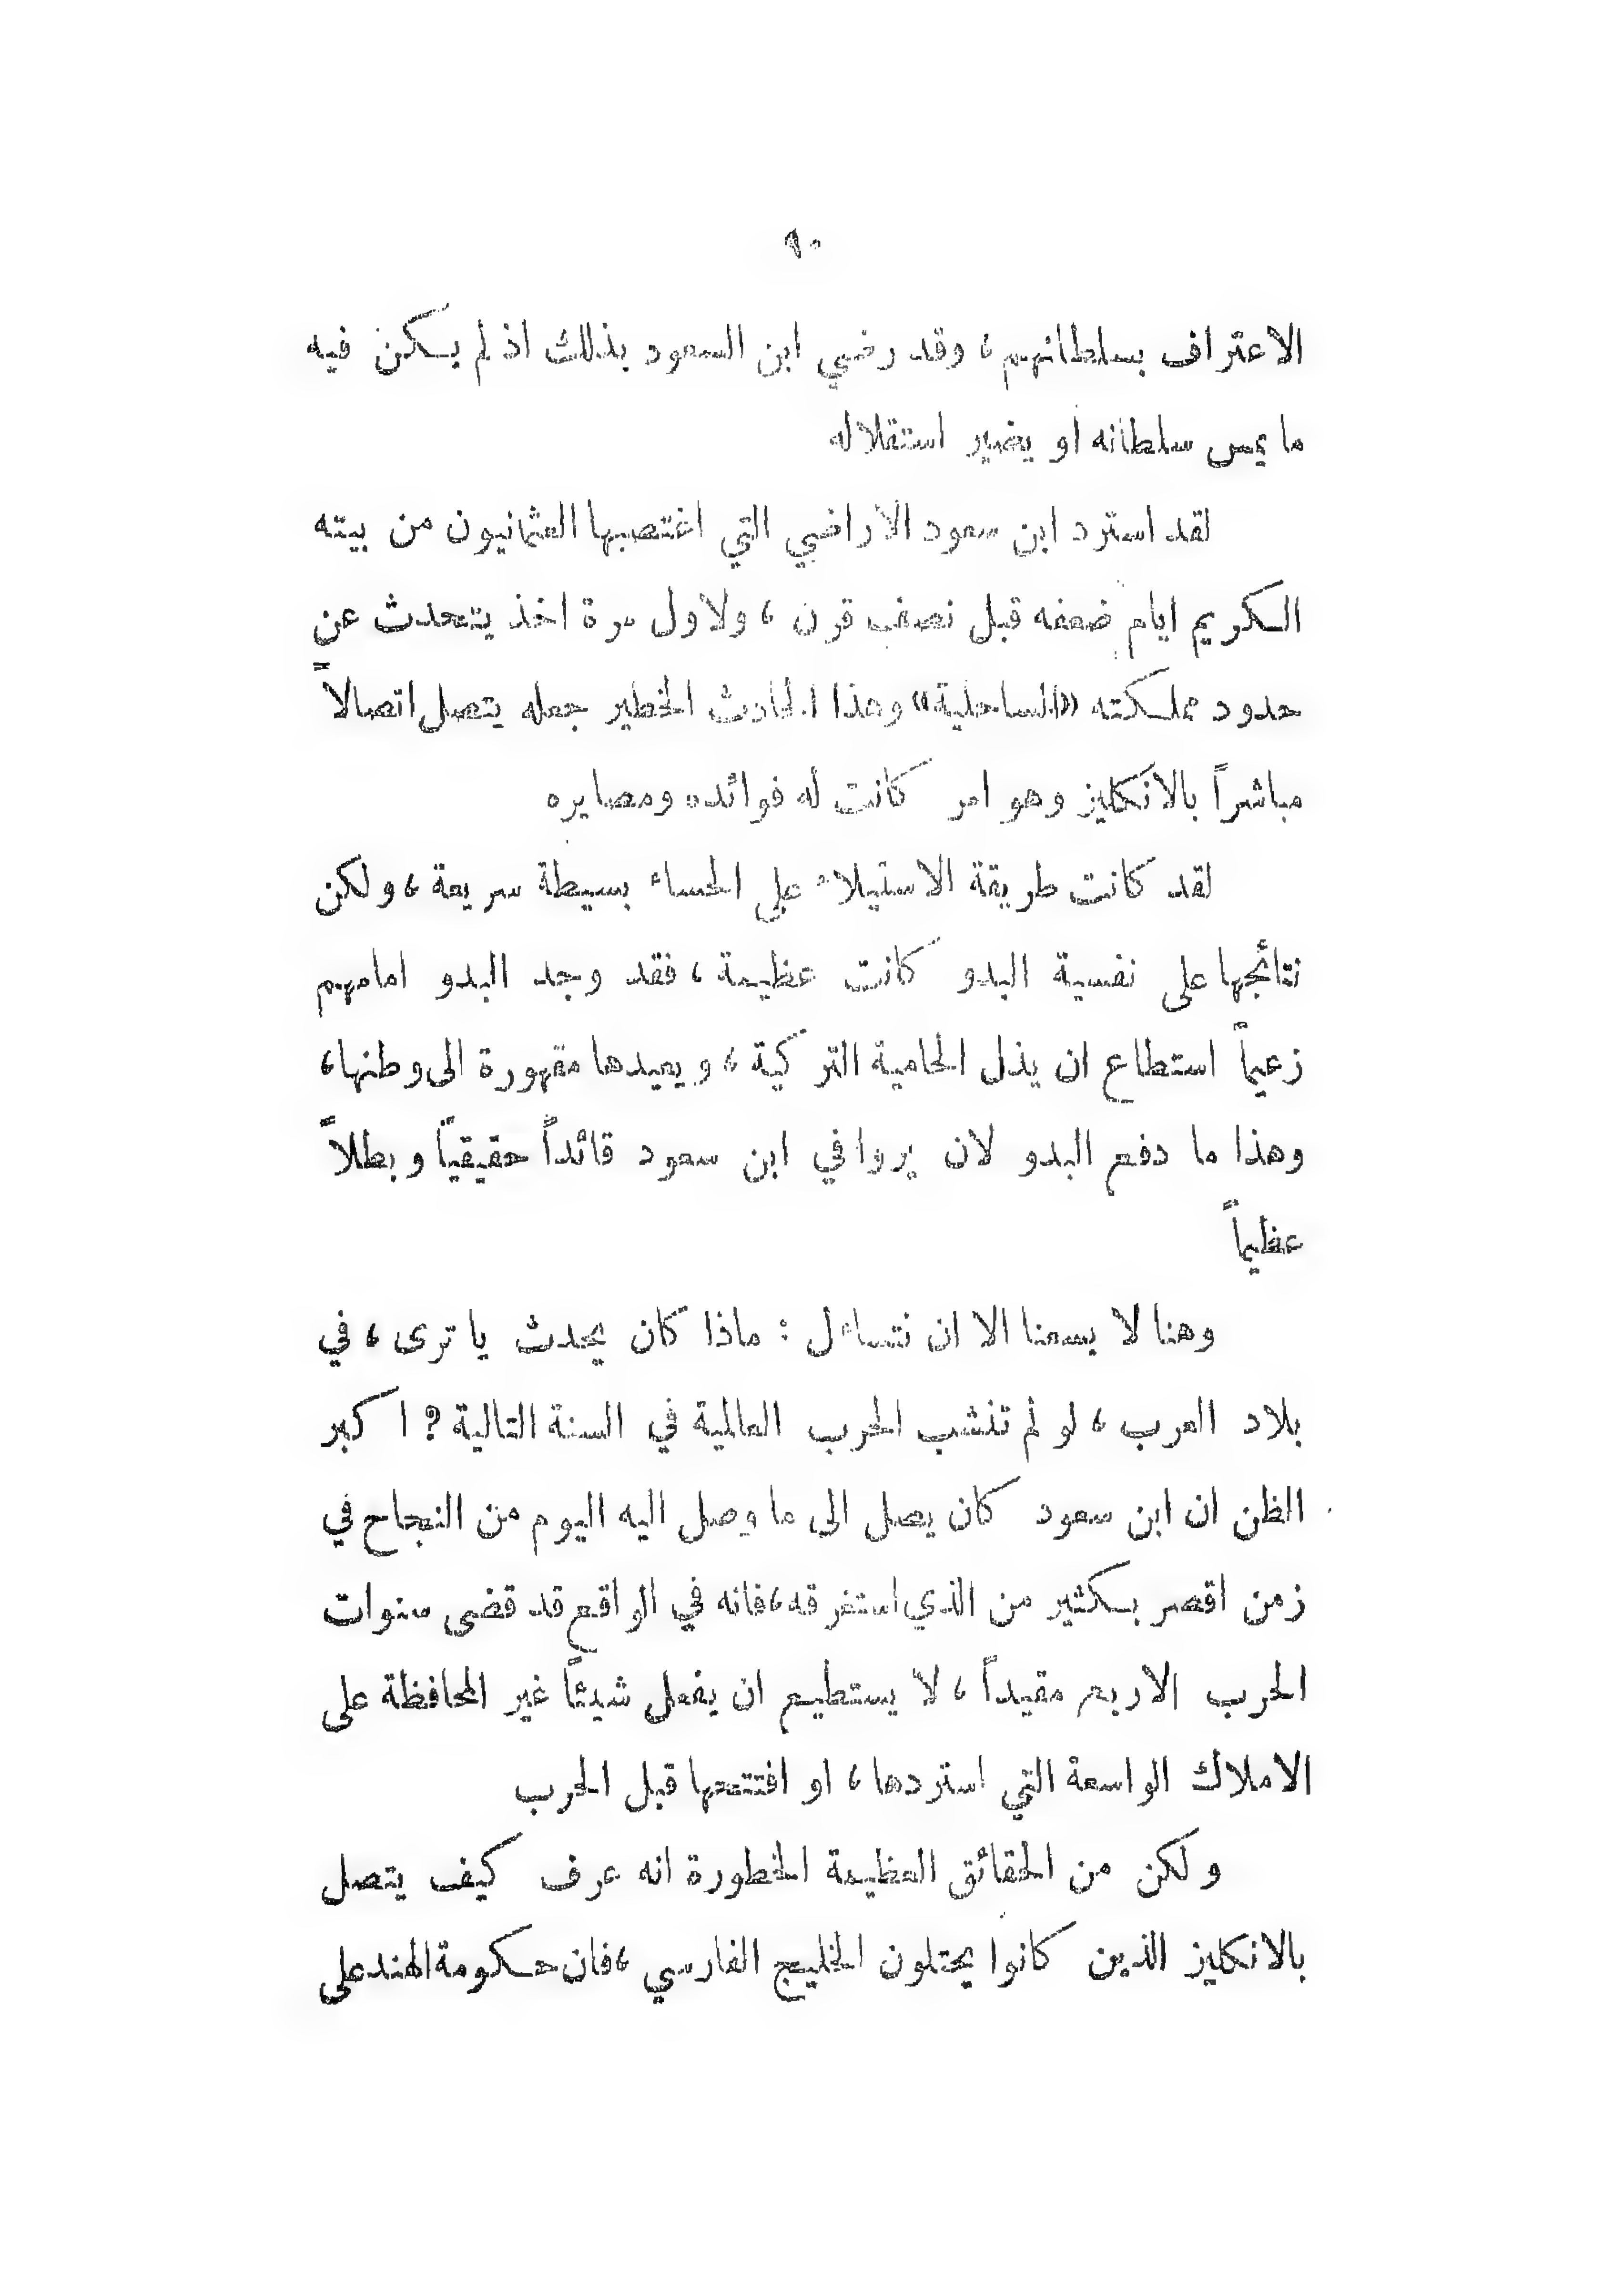 ٩٠
الاعتراف بسلطانهم ، وقد رضي ابن السعود بذلك اذ لم يكن فيه
ما يمس سلطانه او يضير استقلاله
لقد استرد ابن سعود الاراضي التي اغتصبها العثمانيون من بيته
الكريم ايام ضعفه قبل نصف قرن ، ولاول مرة اخذ يتحدث عن
حدود مملكته «الساحلية» وهذا الحادث الخطير جعله يتصل اتصالاً
مباشراً بالانكليز وهو امر كانت له فوائده ومصايره
لقد كانت طريقة الاستيلاء على الحساء بسيطة سريعة ، ولكن
نتائجها على نفسية البدو كانت عظيمة ، فقد وجد البدو امامهم
زعيماً استطاع ان يذل الحامية التركية ، ويعيدها مقهورة الى وطنها ،
وهذا ما دفع البدو لان يروا في ابن سعود قائداً حقيقياً وبطلاً
عظيماً
وهنا لا يسعنا الا ان نتساءل : ماذا كان يحدث يا ترى ، في
بلاد العرب ، لو لم تنشب الحرب العالمية في السنة التالية ? اكبر
الظن ان ابن سعود كان يصل الى ما وصل اليه اليوم من النجاح في
زمن اقصر بكثير من الذي استغرقه ، فانه في الواقع قد قضى سنوات
الحرب الاربع مقيداً ، لا يستطيع ان يفعل شيئاً غير المحافظة على
الاملاك الواسعة التي استردها ، او افتتحها قبل الحرب
ولكن من الحقائق العظيمة الخطورة انه عرف كيف يتصل
بالانكليز الذين كانوا يحتلون الخليج الفارسي ، فان حكومة الهند على